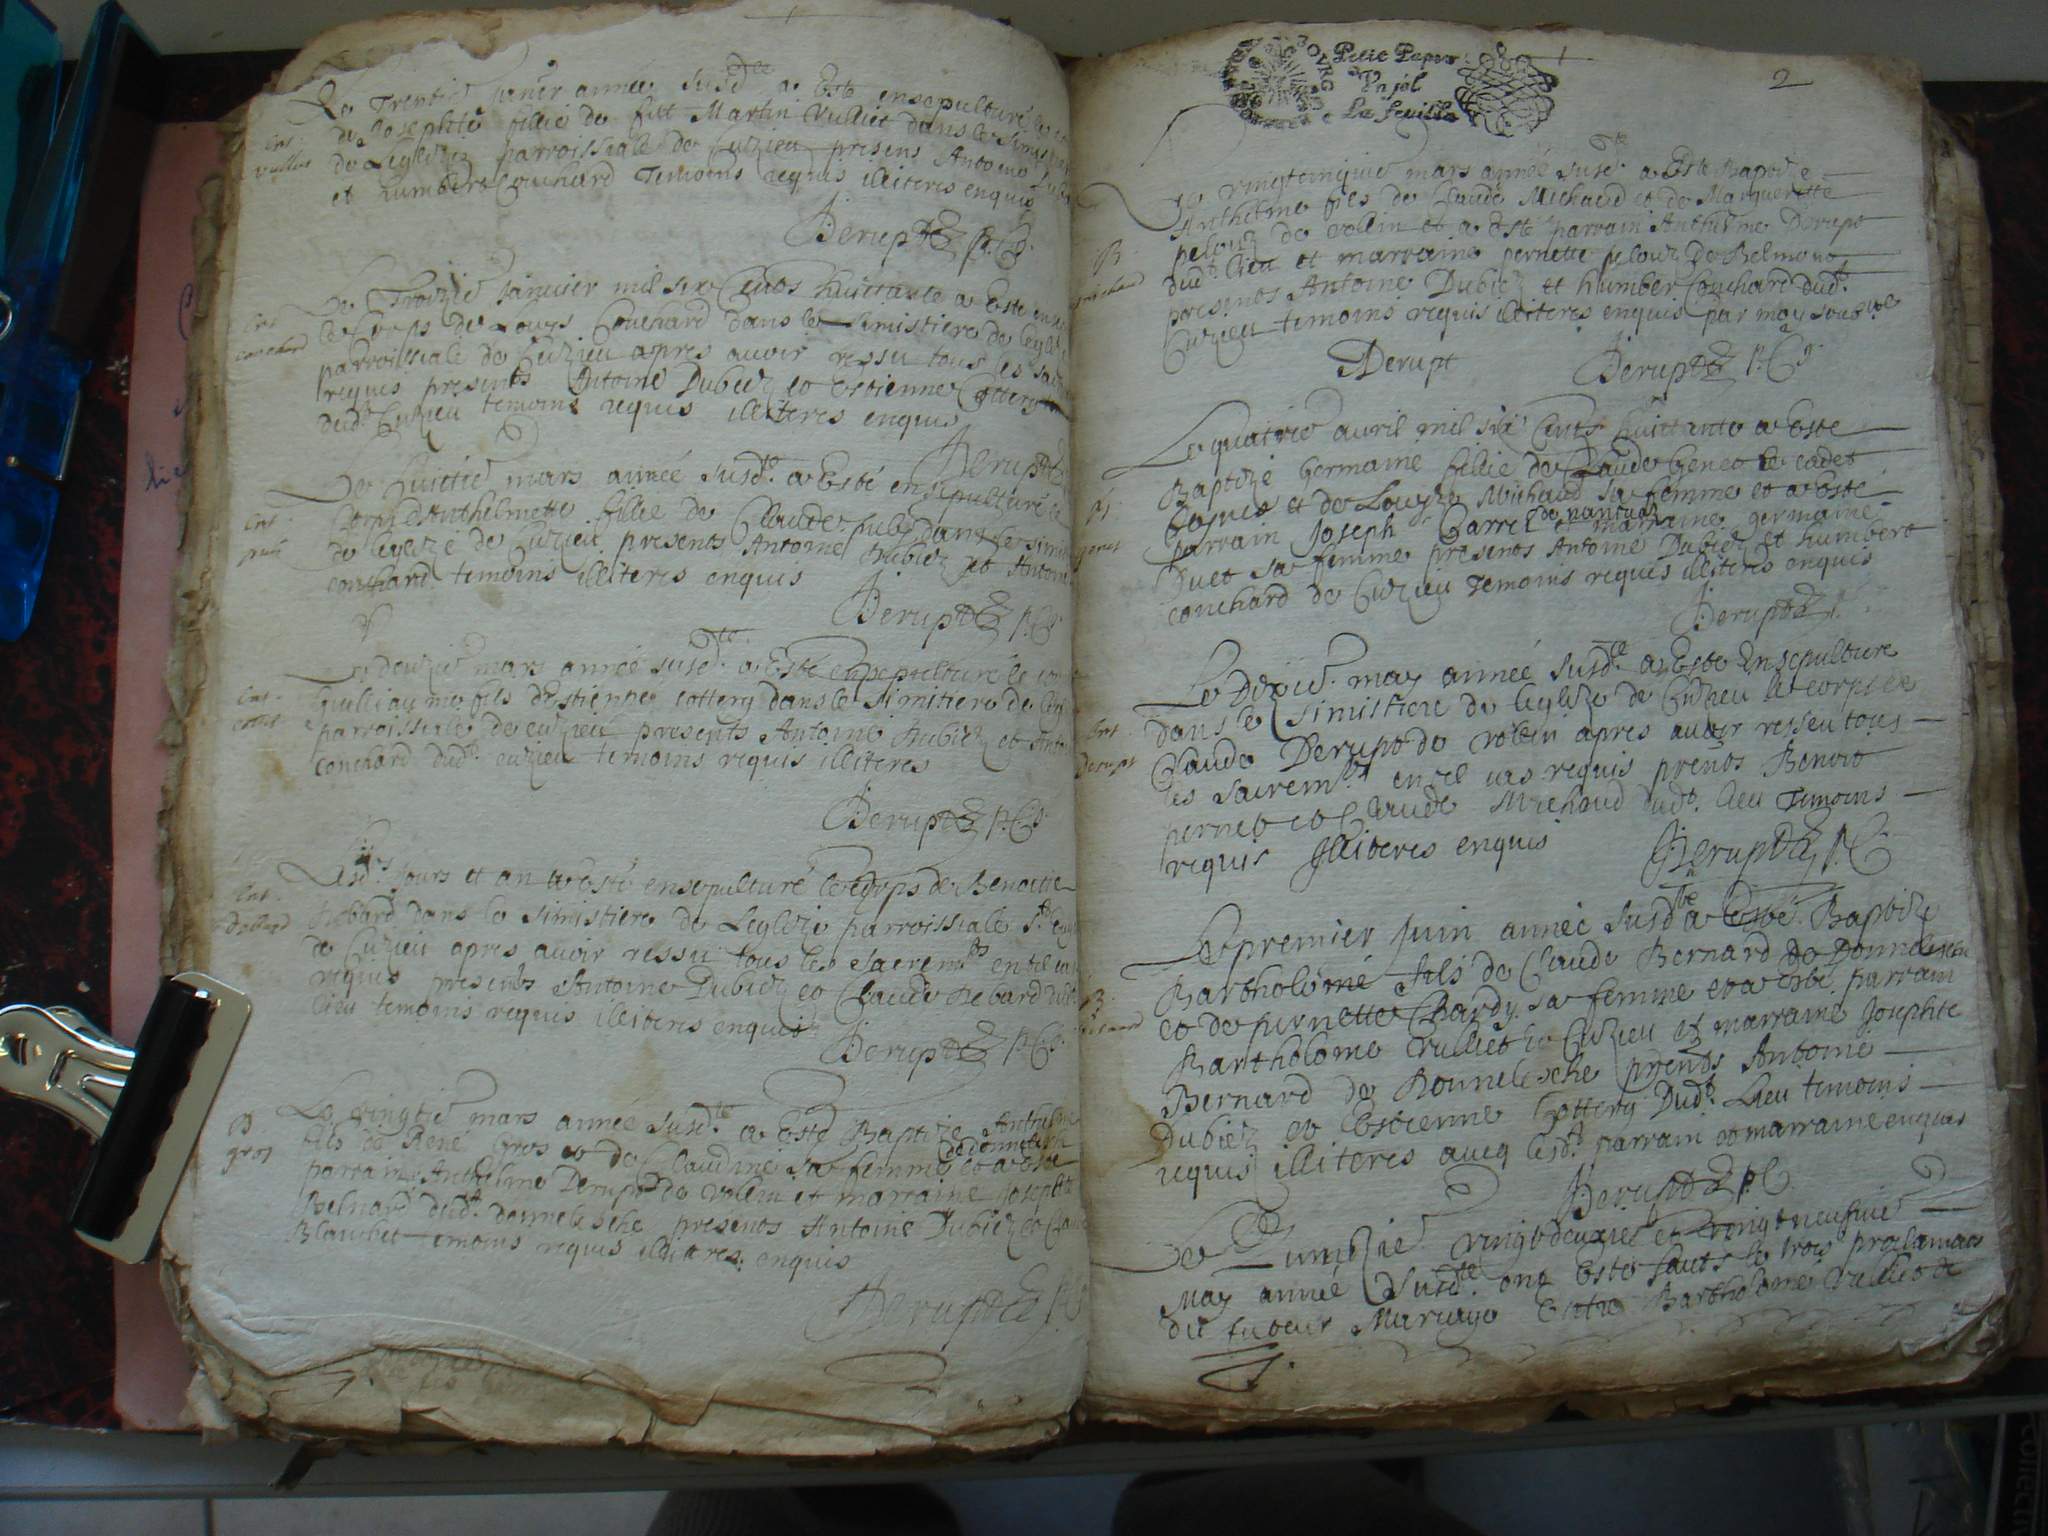 Le Trentie janvr année susdte a Esté ensepulturé
de Josephte fillie de fut Martin Vulliet dans le Simis
de Leglize parroissiale de Cuzieu presens Antoine
et humbert Couchard Temoins requis illiteres enquis
Ent
Derupt P. C.
Le Troizie janvier mil six Cents huittante a Esté
le Corps de Louys Couchard dans le Simistiere de legl
parroissiale de Cuzieu apres avoir ressu tous les sa
requis presents Antoine Dubiez et Estienne Cottery
dudt Cuzieu temoins requis illiteres enquis
Ent
couchard
Derupt
Le huictie mars année susdte a Esté ensepulturé le
Corps d'Anthelmette fillie de Claude dans le simi
de leglize de Cuzieu presents Antoine Dubiez et Antoin
couchard temoins illiteres enquis
Ent
Derupt P. C.
Le deuzie mars année susdte a Esté ensepulturé le
guilliaume fils d'Estienne cottery dans le Simitiere de
parroissiale de cuzieu presents Antoine Dubiez et Anto
conchard dudt cuzieu temoins requis illiteres
Ent
Derupt P. C.
Lesdts jours et an a esté ensepulturé le corps de Benoitte
Debard dans le simistiere de Leglize parroissiale
de Cuzieu apres avoir ressu tous les Sacremts en tel cas
requis presents Antoine Dubiez et Claude Debard
lieu temoins requis illiteres enquis
Ent
Derupt P. C.
Le vingtie mars année susdte a Esté Baptize Anthelme
fils de René Gros et de Claudine sa femme et a esté
parrain Anthelme Derupt de volein et marraine Josephte
Belnard dudt donnelesche presents Antoine Dubiez et Claude
Blanchet temoins requis illiteres enquis
B
gros
Derupt P. C.
Petit Papier
Un sol
La feuille
2
Le vingtcinquie mars année susdte a Esté Baptize
Anthelme fils de Claude Michaud et de Marguerette
pelouz de vollin et a Esté parrain Anthelme Derupt
dudt lieu et marraine pernette pelouz de Belmont
presents Antoine Dubiez et humber Couchard dudt
Cuzieu temoins requis illiteres enquis par moy soubsne
B
michaud
Derupt Derupt P. C.
Le quatrie avril mil six Cents huittante a Esté
Baptizé Germaine fillie de Claude Genet le cadet
et de Louyze Michaud sa femme et a esté
parrain Joseph Carrel de nantuaz et marraine germaine
Duet sa femme presents Antoine Dubiez et humbert
conchard de Cuzieu temoins requis illiteres enquis
B
genet
Derupt
Le Dixie may année susdte a Esté Ensepulture
dans le Simistiere de leglize de Cuzieu le corps de
Claude Derupt de vollin apres avoir resseu tous
les sacremts en tel cas requis prents Benoit
pernet et Claude Michaud dudt lieu Temoins
requis Illiteres enquis
Ent
Derupt
Derupt P. C.
Le premier juin année susdte a Esté Baptize
Bartholomé fils de Claude Bernard de Donnelesche
et de pernette Chardy sa femme et a Esté parrain
Bartholome Vulliet de Cuzieu et marraine Josephte
Bernard de Donnelesche prents Antoine
Dubiez et Estienne Cottery Dudt Lieu temoins
requis illiteres aveq lesdts parrain et marraine enquis
B
Derupt P. C.
Le vingtdeuzie et vingtneufvie
May année Susdte ont Esté faits le trois proclamaos
du futeur Mariage Entre Bartholome Vulliet de